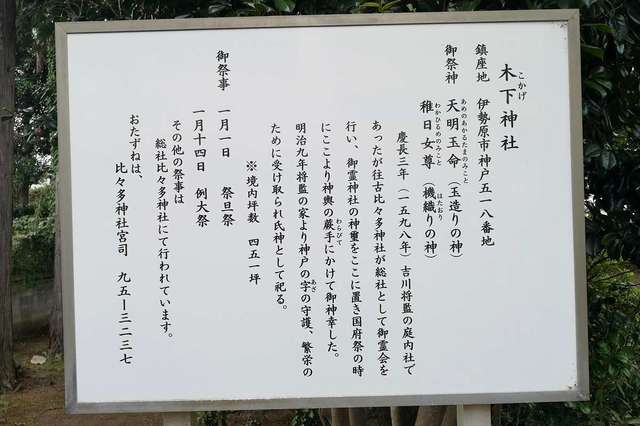 木下神社
こかげ
鎮座地　伊勢原市神戸五一八番地
御祭神　天明玉命（玉造りの神）
あめのあかるたまのみこと
稚日女尊（機織りの神）
わかひるめのみこと
はたおり
慶長三年（一五九八年）吉川将監の庭内社で
あったが往古比々多神社が総社として御霊会を
行い、御霊神社の神璽をここに置き国府祭の時
にここより神輿の蕨手にかけて御神幸した。
わらびて
明治九年将監の家より神戸の字の守護、繁栄の
あざ
ために受け取られ氏神として祀る。
※境内坪数　四五一坪
御祭事　一月一日　祭旦祭
一月十四日　例大祭
その他の祭事は
総社比々多神社にて行われています。
おたずねは、
比々多神社宮司　九五ー三二三七